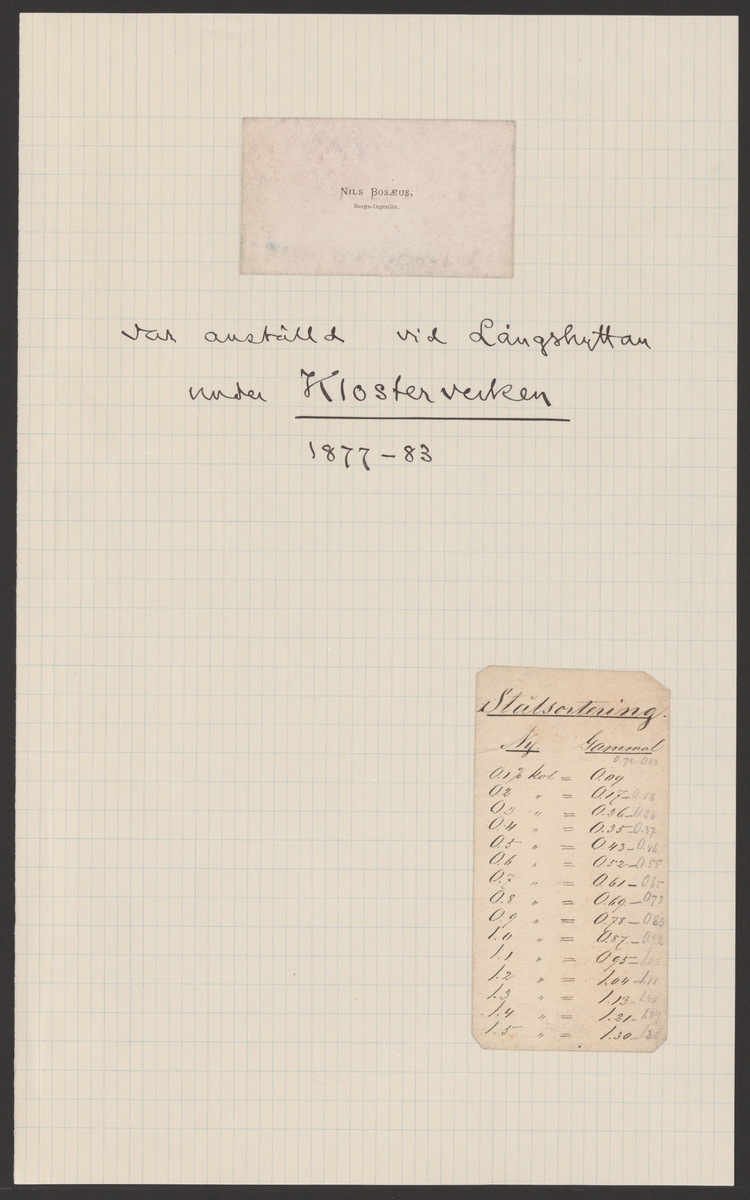 NILS BOSÆUS,
Bergs-Ingeniör.
var anställd vid Långshyttan
under Klosterverken
1877-83
Stålsortering.
Ny. Gammal
0.1% kol = 0.09
0.2 " = 0.17-0.18
0.3 " = 0.26-0.28
0.4 " = 0.35-0.37
0.5 " = 0.43-0.46
0.6 " = 0.52-0.55
0.7 " = 0.61-0.65
0.8 " = 0.69-0.73
0.9 " = 0.78-0.83
1.0 " = 0.87-0.92
1.1 " = 0.95-1.02
1.2 " = 1.04-1.11
1.3 " = 1.13-
1.4 " = 1.21-
1.5 " = 1.30-